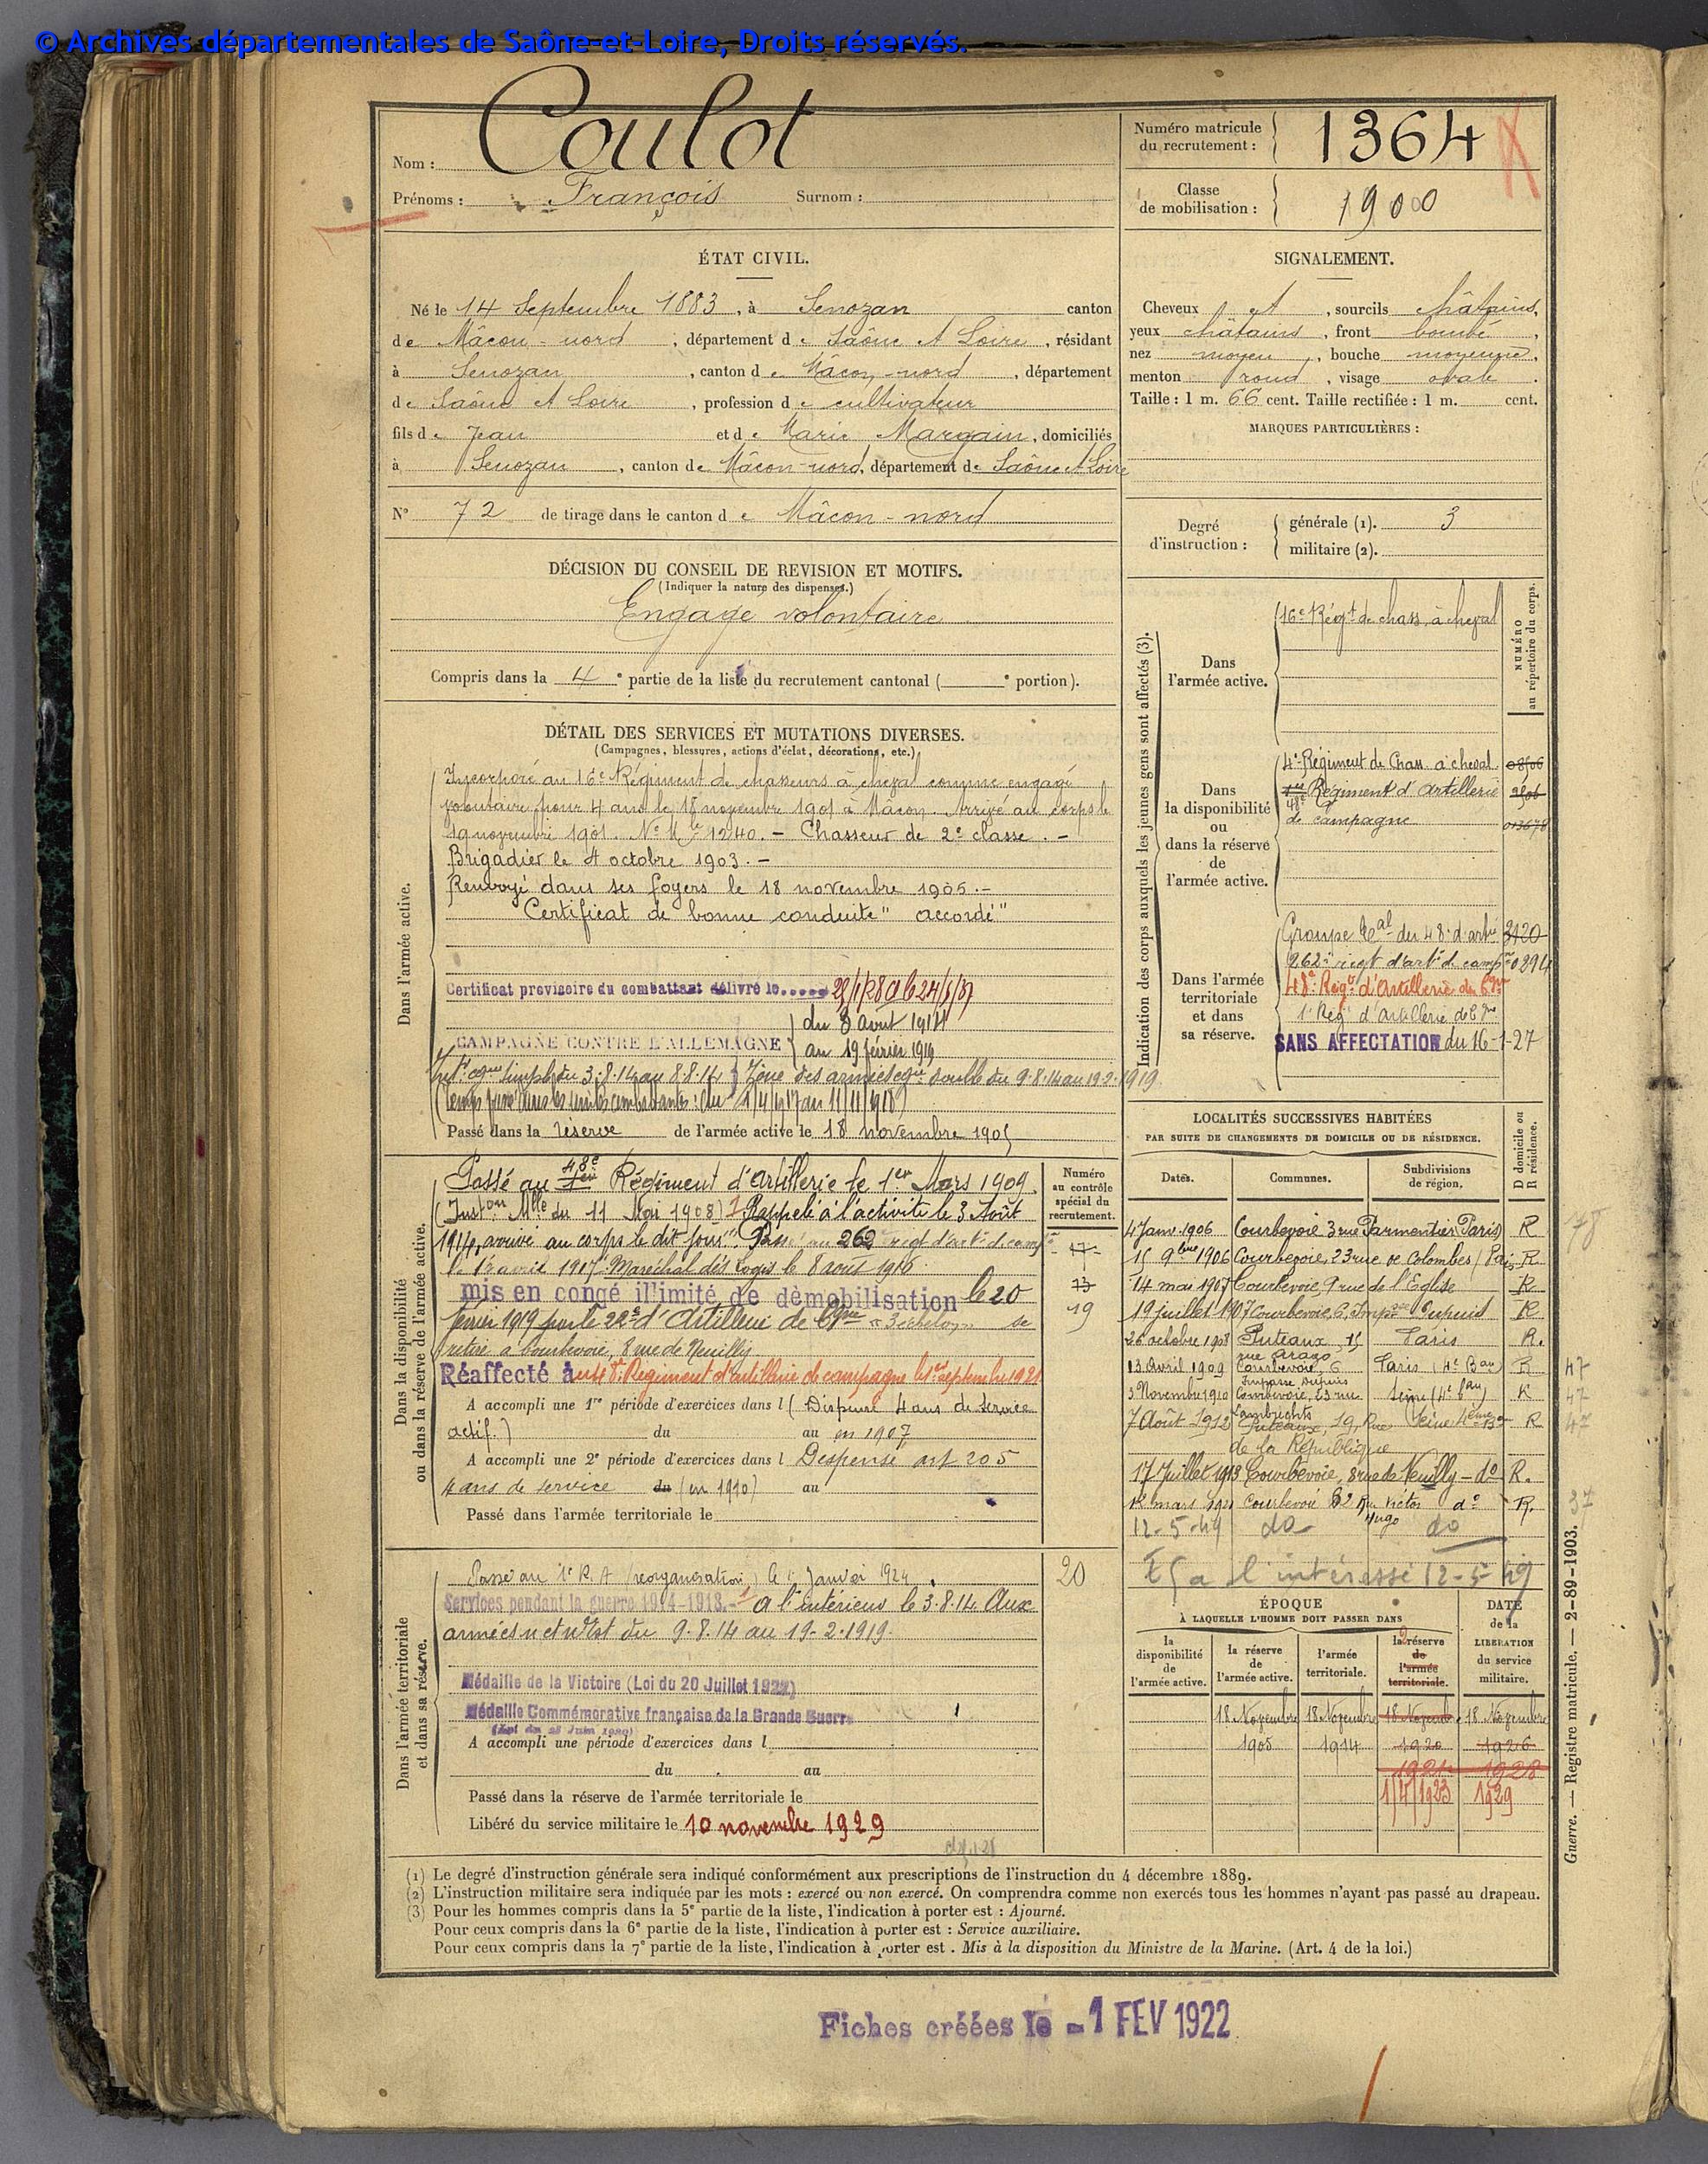 © Archives départementales de Saône-et-Loire, Droits réservés.
Nom : Coulot
Prénoms : François Surnom :
Numéro matricule du recrutement : 1364
Classe de mobilisation : 1900
ÉTAT CIVIL.
Né le 14 Septembre 1883, à Senozan canton
de Mâcon-nord, département de Saône et Loire, résidant
à Senozan, canton de Mâcon-nord, département
de Saône et Loire, profession de cultivateur
fils de Jean et de Marie Margain, domiciliés
à Senozan, canton de Mâcon-nord, département de Saône et Loire
N° 72 de tirage dans le canton de Mâcon-nord
SIGNALEMENT.
Cheveux et, sourcils châtains,
yeux châtains, front bombé,
nez moyen, bouche moyenne,
menton rond, visage ovale.
Taille : 1 m. 66 cent. Taille rectifiée : 1 m. cent.
MARQUES PARTICULIÈRES :
Degré d'instruction : générale (1). 3
militaire (2).
DÉCISION DU CONSEIL DE REVISION ET MOTIFS.
(Indiquer la nature des dispenses.)
Engagé volontaire
Compris dans la 4e partie de la liste du recrutement cantonal ( e portion).
DÉTAIL DES SERVICES ET MUTATIONS DIVERSES.
(Campagnes, blessures, actions d'éclat, décorations, etc.)
Dans l'armée active.
Incorporé au 16e Régiment de chasseurs à cheval comme engagé
volontaire pour 4 ans le 18 novembre 1901 à Mâcon. Arrivé au corps le
19 novembre 1901. No Mle 1240. - Chasseur de 2e classe. -
Brigadier le 4 octobre 1903. -
Renvoyé dans ses foyers le 18 novembre 1905. -
Certificat de bonne conduite "accordé"
Certificat provisoire du combattant délivré le
CAMPAGNE CONTRE L'ALLEMAGNE
du 3 août 1914
au 19 février 1919
simple du 3.8.14 au 8.8.14 Zône des armées double du 9.8.14 au 19.2.1919
Passé dans la réserve de l'armée active le 18 novembre 1905
Dans la disponibilité ou dans la réserve de l'armée active.
Passé au 48e 1er Régiment d'Artillerie le 1er Mars 1909
(Inston Mlle du 11 Mai 1908) Rappelé à l'activité le 3 Août
1914, arrivé au corps le dit jour. Passé au 262e regt d'artie de campne
le 1er avril 1917. Maréchal des logis le 8 août 1916.
mis en congé illimité de démobilisation le 20
février 1919 par le 22e d'Artillerie de Cgne 3e échelon se
retire à Courbevoie, 8 rue de Neuilly.
Réaffecté au 48e Régiment d'artillerie de campagne le 1er septembre 1921
A accompli une 1re période d'exercices dans l (Dispensé 4 ans de service
actif.) du au en 1907
A accompli une 2e période d'exercices dans l Dispensé art 205
4 ans de service du (en 1910) au
Passé dans l'armée territoriale le
Numéro au contrôle spécial du recrutement.
17
13
19
20
Dans l'armée territoriale et dans sa réserve.
Passé au 1e R.A (réorganisation) le 1r Janvier 1924.
Services pendant la guerre 1914-1918. - A l'intérieur le 3.8.14 Aux
armées n et n Est du 9.8.14 au 19.2.1919.
Médaille de la Victoire (Loi du 20 Juillet 1922)
Médaille Commémorative française de la Grande Guerre
A accompli une période d'exercices dans l
du au
Passé dans la réserve de l'armée territoriale le
Libéré du service militaire le 10 novembre 1929
Indication des corps auxquels les jeunes gens sont affectés (3).
NUMÉRO au répertoire du corps.
Dans l'armée active.
16e Régt de chass. à cheval
Dans la disponibilité ou dans la réserve de l'armée active.
4e Régiment de Chass. à cheval
1er Régiment d'artillerie
48e
de campagne
Dans l'armée territoriale et dans sa réserve.
Groupe teal du 48e d'artie 3120
262e regt d'artie de campne 0294
48e Régt d'Artillerie de Cgne
1e Régt d'Artillerie de Cgne
SANS AFFECTATION du 16-1-27
LOCALITÉS SUCCESSIVES HABITÉES
PAR SUITE DE CHANGEMENTS DE DOMICILE OU DE RÉSIDENCE.
Dates. Communes. Subdivisions de région. D domicile ou R résidence.
4 Janv. 1906 Courbevoie 3 rue Parmentier (Paris) R
15 9bre 1906 Courbevoie, 23 rue de Colombes (Paris R
14 mai 1907 Courbevoie, 9 rue de l'Eglise R
19 juillet 1907 Courbevoie, 6, Impsse Dupuis R
26 octobre 1908 Puteaux, 15 rue Arago Paris R.
13 Avril 1909 Courbevoie, 6 Impasse Dupuis Paris (4e Bau) R 47
3 Novembre 1910 Courbevoie, 23 rue Lambrechts Seine (4e Bau) R 47
7 Août 1912 Puteaux, 19, Rue de la République Seine 4ème R 47
17 Juillet 1913 Courbevoie, 8 rue de Neuilly - do R.
mars 1921 Courbevoie 82 Rue Victor Hugo do R. 37
12-5-49 do do
l'intéressé 12-5-49
ÉPOQUE
À LAQUELLE L'HOMME DOIT PASSER DANS
la disponibilité de l'armée active.
la réserve de l'armée active.
l'armée territoriale.
la réserve de l'armée territoriale.
DATE de la LIBÉRATION du service militaire.
18 Novembre 18 Novembre 18 Novembre 18 Novembre
1905 1914 1920 1926
1921 1928
1/4/1923 1929
Guerre. — Registre matricule. — 2-89-1903.
(1) Le degré d'instruction générale sera indiqué conformément aux prescriptions de l'instruction du 4 décembre 1889.
(2) L'instruction militaire sera indiquée par les mots : exercé ou non exercé. On comprendra comme non exercés tous les hommes n'ayant pas passé au drapeau.
(3) Pour les hommes compris dans la 5e partie de la liste, l'indication à porter est : Ajourné.
Pour ceux compris dans la 6e partie de la liste, l'indication à porter est : Service auxiliaire.
Pour ceux compris dans la 7e partie de la liste, l'indication à porter est . Mis à la disposition du Ministre de la Marine. (Art. 4 de la loi.)
Fiches créées le -1 FEV 1922